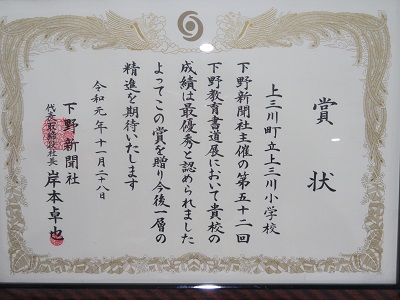 賞状
上三川町立上三川小学校
下野新聞社主催の第五十二回
下野教育書道展において貴校の
成績は最優秀と認められました
よってこの賞を贈り今後一層の
精進を期待いたします
令和元年十一月二十八日
下野新聞社
代表取締役社長 岸本卓也